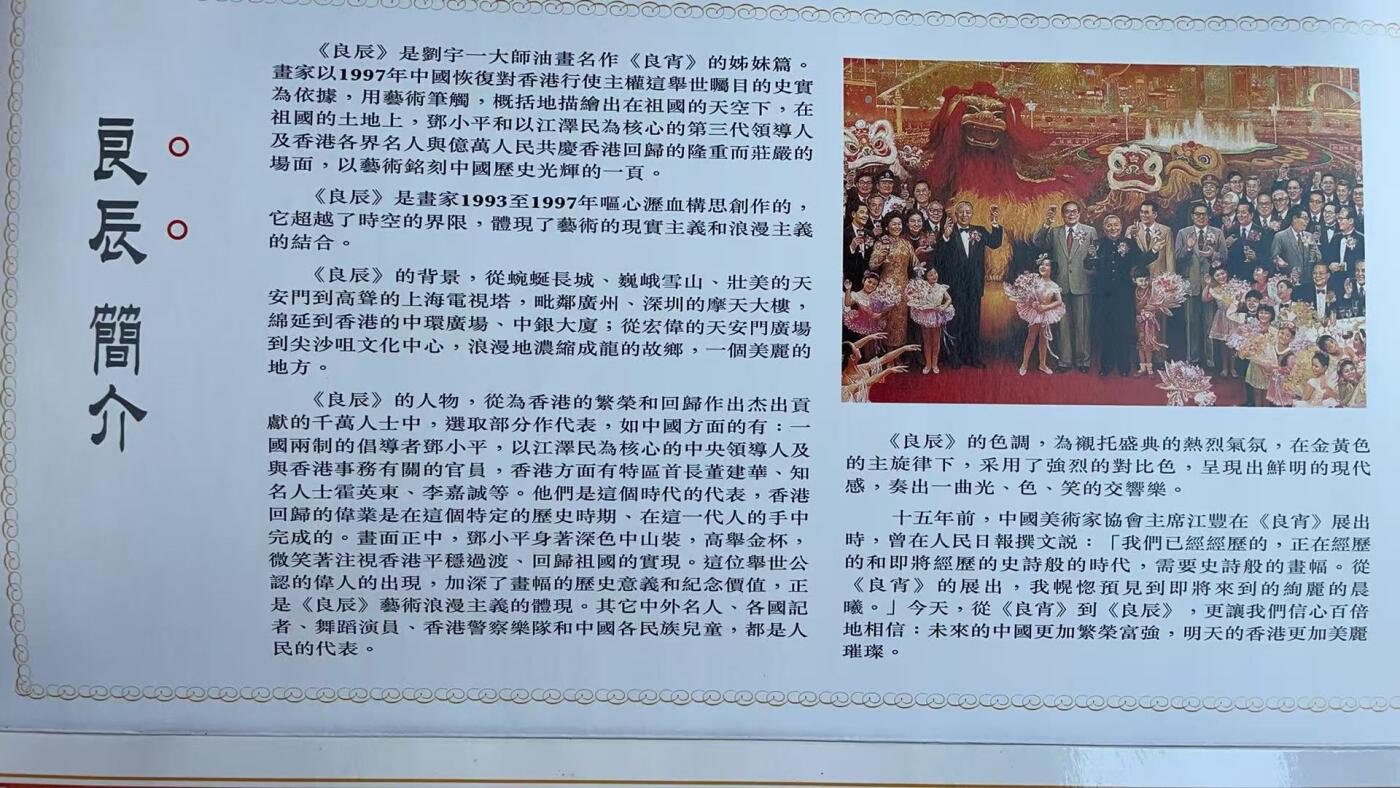 良辰 簡介
《良辰》是劉宇一大師油畫名作《良宵》的姊妹篇。
畫家以1997年中國恢復對香港行使主權這舉世矚目的史實
為依據，用藝術筆觸，概括地描繪出在祖國的天空下，在
祖國的土地上，鄧小平和以江澤民為核心的第三代領導人
及香港各界名人與億萬人民共慶香港回歸的隆重而莊嚴的
場面，以藝術銘刻中國歷史光輝的一頁。
《良辰》是畫家1993至1997年嘔心瀝血構思創作的，
它超越了時空的界限，體現了藝術的現實主義和浪漫主義
的結合。
《良辰》的背景，從蜿蜒長城、巍峨雪山、壯美的天
安門到高聳的上海電視塔，毗鄰廣州、深圳的摩天大樓，
綿延到香港的中環廣場、中銀大廈；從宏偉的天安門廣場
到尖沙咀文化中心，浪漫地濃縮成龍的故鄉，一個美麗的
地方。
《良辰》的人物，從為香港的繁榮和回歸作出杰出貢
獻的千萬人士中，選取部分作代表，如中國方面的有：一
國兩制的倡導者鄧小平，以江澤民為核心的中央領導人及
與香港事務有關的官員，香港方面有特區首長董建華、知
名人士霍英東、李嘉誠等。他們是這個時代的代表，香港
回歸的偉業是在這個特定的歷史時期、在這一代人的手中
完成的。畫面正中，鄧小平身著深色中山裝，高舉金杯，
微笑著注視香港平穩過渡、回歸祖國的實現。這位舉世公
認的偉人的出現，加深了畫幅的歷史意義和紀念價值，正
是《良辰》藝術浪漫主義的體現。其它中外名人、各國記
者、舞蹈演員、香港警察樂隊和中國各民族兒童，都是人
民的代表。
《良辰》的色調，為襯托盛典的熱烈氣氛，在金黃色
的主旋律下，采用了強烈的對比色，呈現出鮮明的現代
感，奏出一曲光、色、笑的交響樂。
十五年前，中國美術家協會主席江豐在《良宵》展出
時，曾在人民日報撰文説：「我們已經經歷的，正在經歷
的和即將經歷的史詩般的時代，需要史詩般的畫幅。從
《良宵》的展出，我幌惚預見到即將來到的絢麗的晨
曦。」今天，從《良宵》到《良辰》，更讓我們信心百倍
地相信：未來的中國更加繁榮富強，明天的香港更加美麗
璀璨。